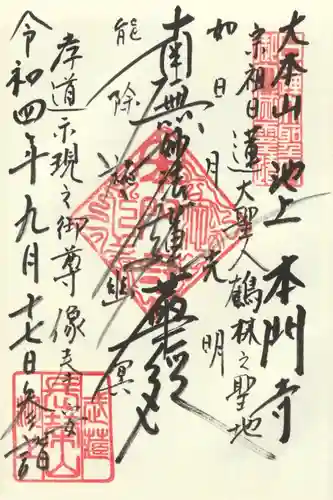 大本山 池上 本門寺
宗祖日蓮大聖人鶴林之聖地
如日月光明
南無妙法蓮華経
能除諸幽冥
孝道示現之御尊像奉安
令和四年九月十七日参詣